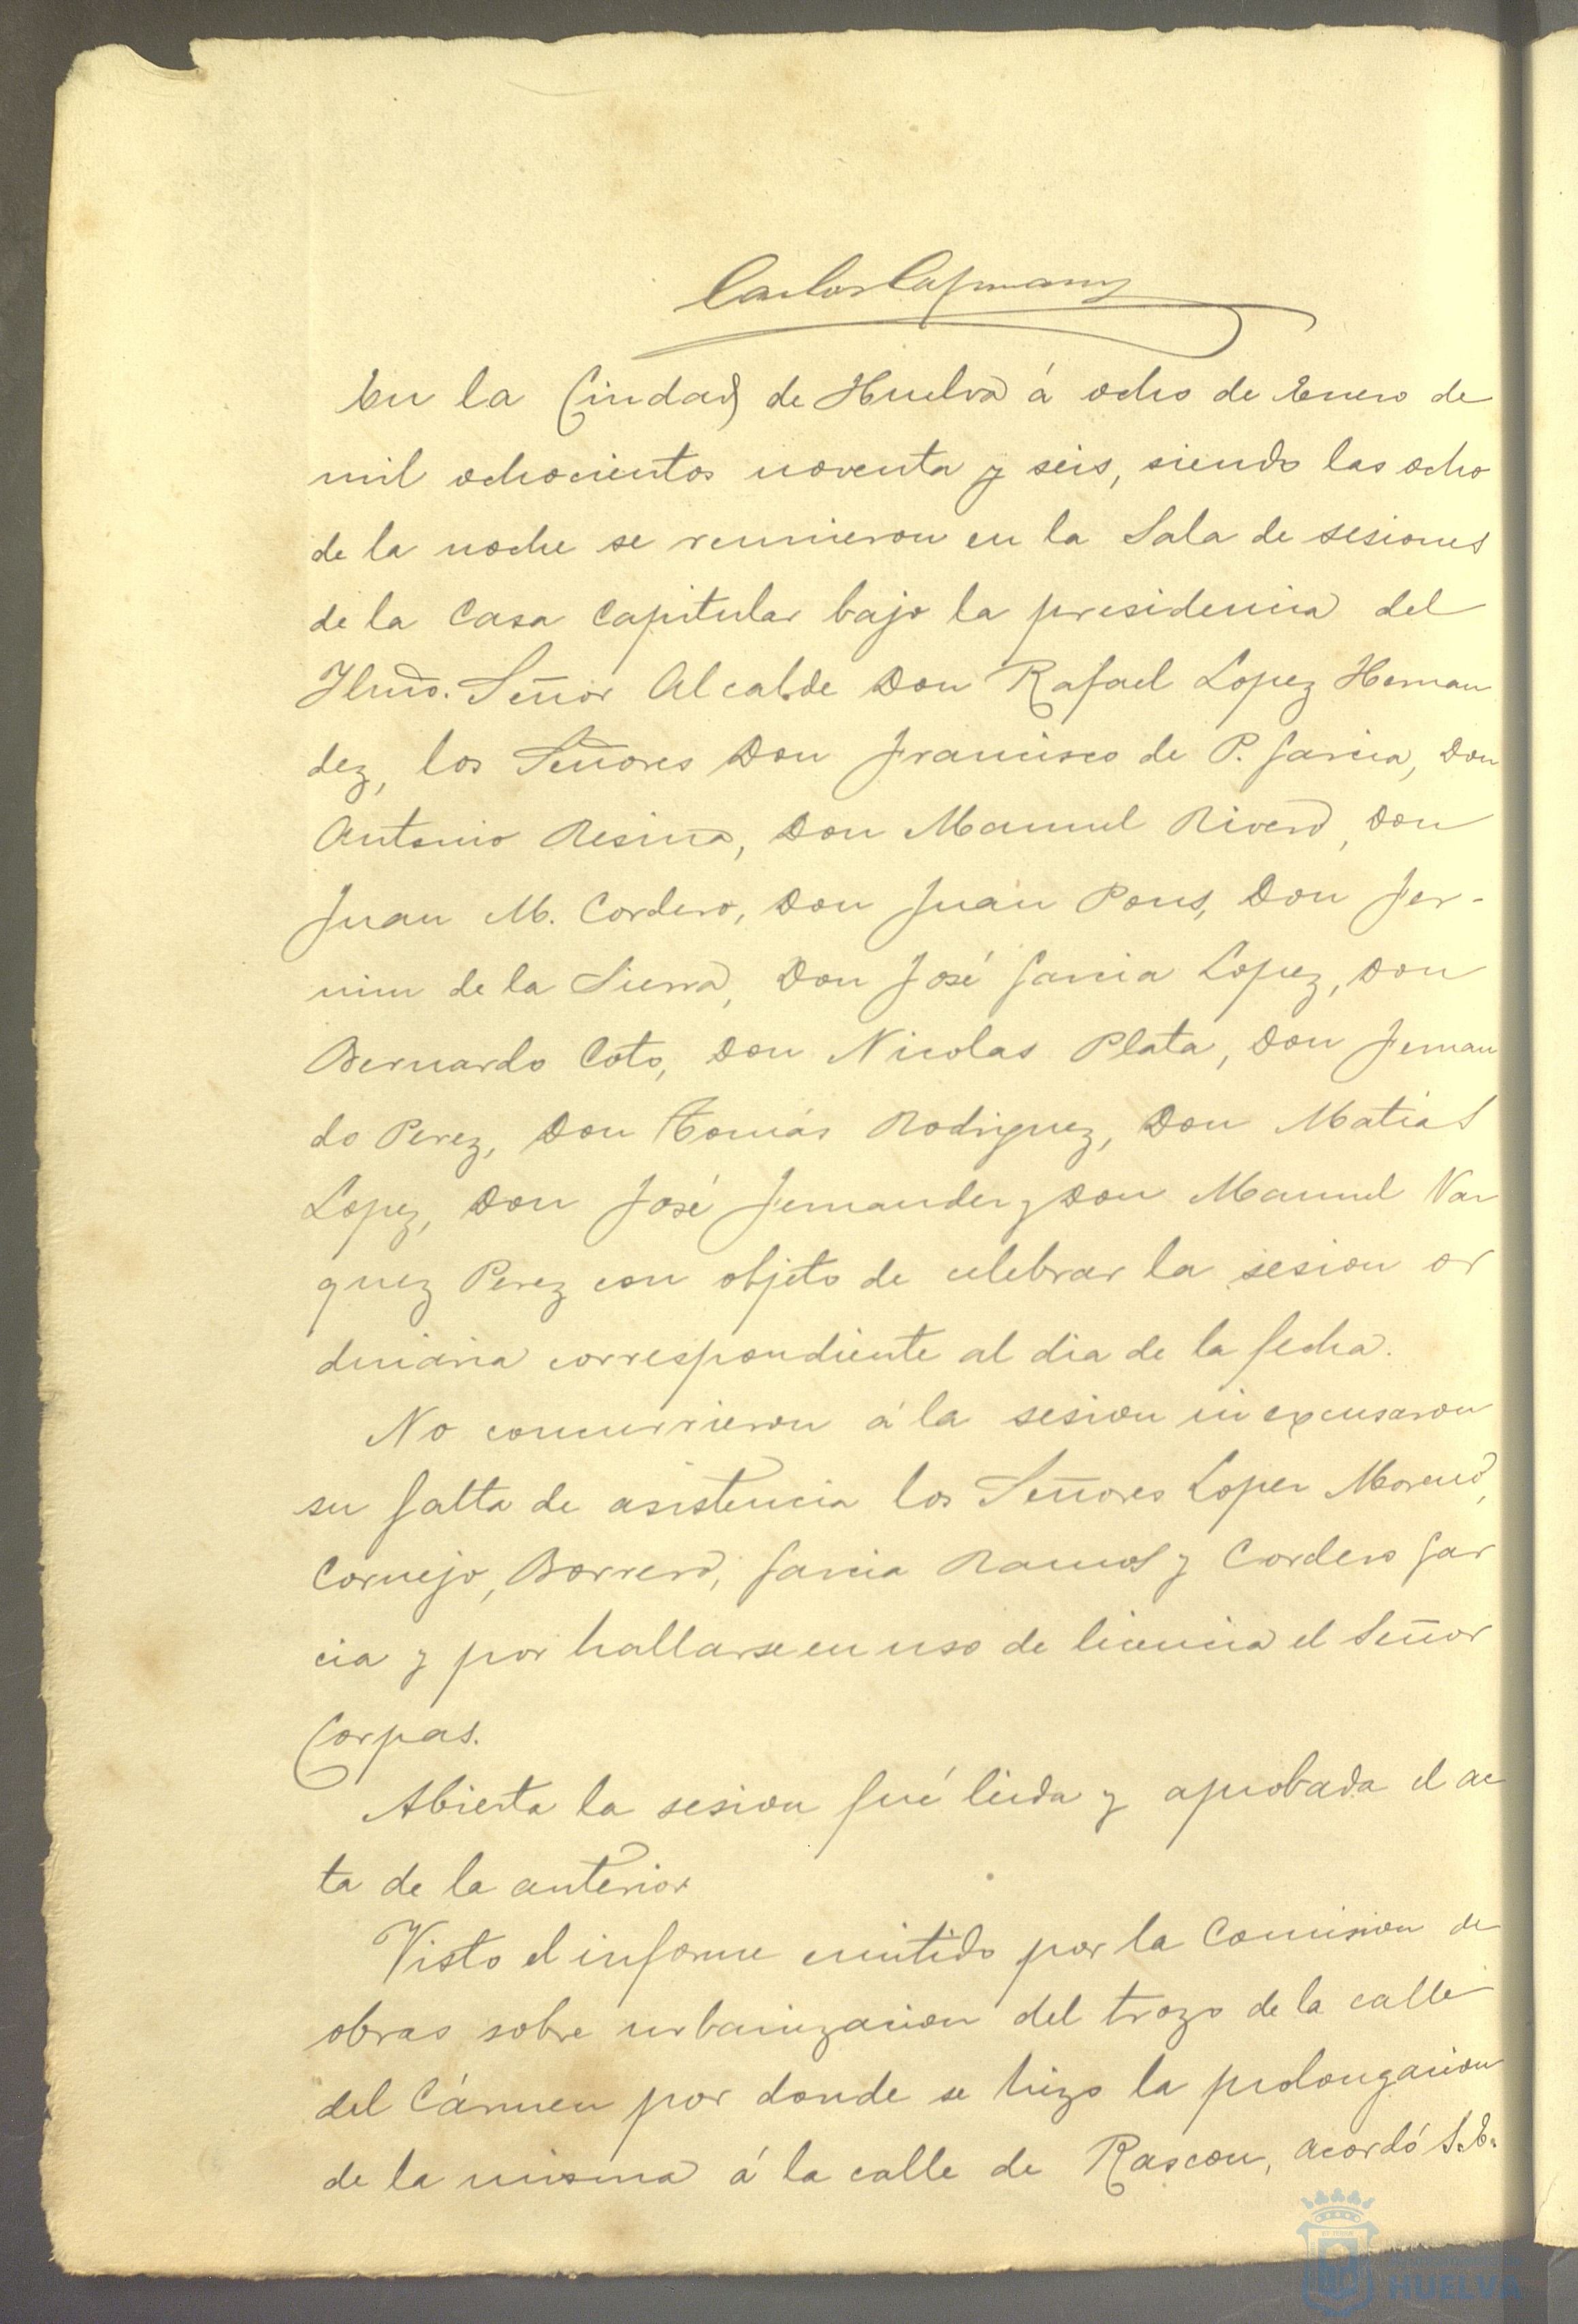 Carlos Capmany
En la Ciudad de Huelva á ocho de Enero de
mil ochocientos noventa y seis, siendo las ocho
de la noche se reunieron en la Sala de sesiones
de la Casa Capitular bajo la presidencia del
Ylmo. Señor Alcalde Don Rafael Lopez Hernan
dez, los Señores Don Francisco de P. Garcia, Don
Antonio Resina, Don Manuel Rivero, Don
Juan M. Cordero, Don Juan Pons, Don Fer-
min de la Sierra, Don José Garcia Lopez, Don
Bernardo Coto, Don Nicolas Plata, Don Fernan
do Perez, Don Tomás Rodriguez, Don Matias
Lopez, Don José Fernandez y Don Manuel Var
quez Perez con objeto de celebrar la sesion or
dinaria correspondiente al dia de la fecha.
No concurrieron á la sesion ni excusaron
su falta de asistencia los Señores Lopez Moreno,
Cornejo, Borrero, Garcia Ramos y Cordero Gar
cia y por hallarse en uso de licencia el Señor
Corpas.
Abierta la sesion fué leida y aprobada el ac
ta de la anterior
Visto el informe emitido por la Comision de
obras sobre urbanizacion del trozo de la calle
del Cármen por donde se hizo la prolongacion
de la misma á la calle de Rascon, acordó S.E.
HUELVA